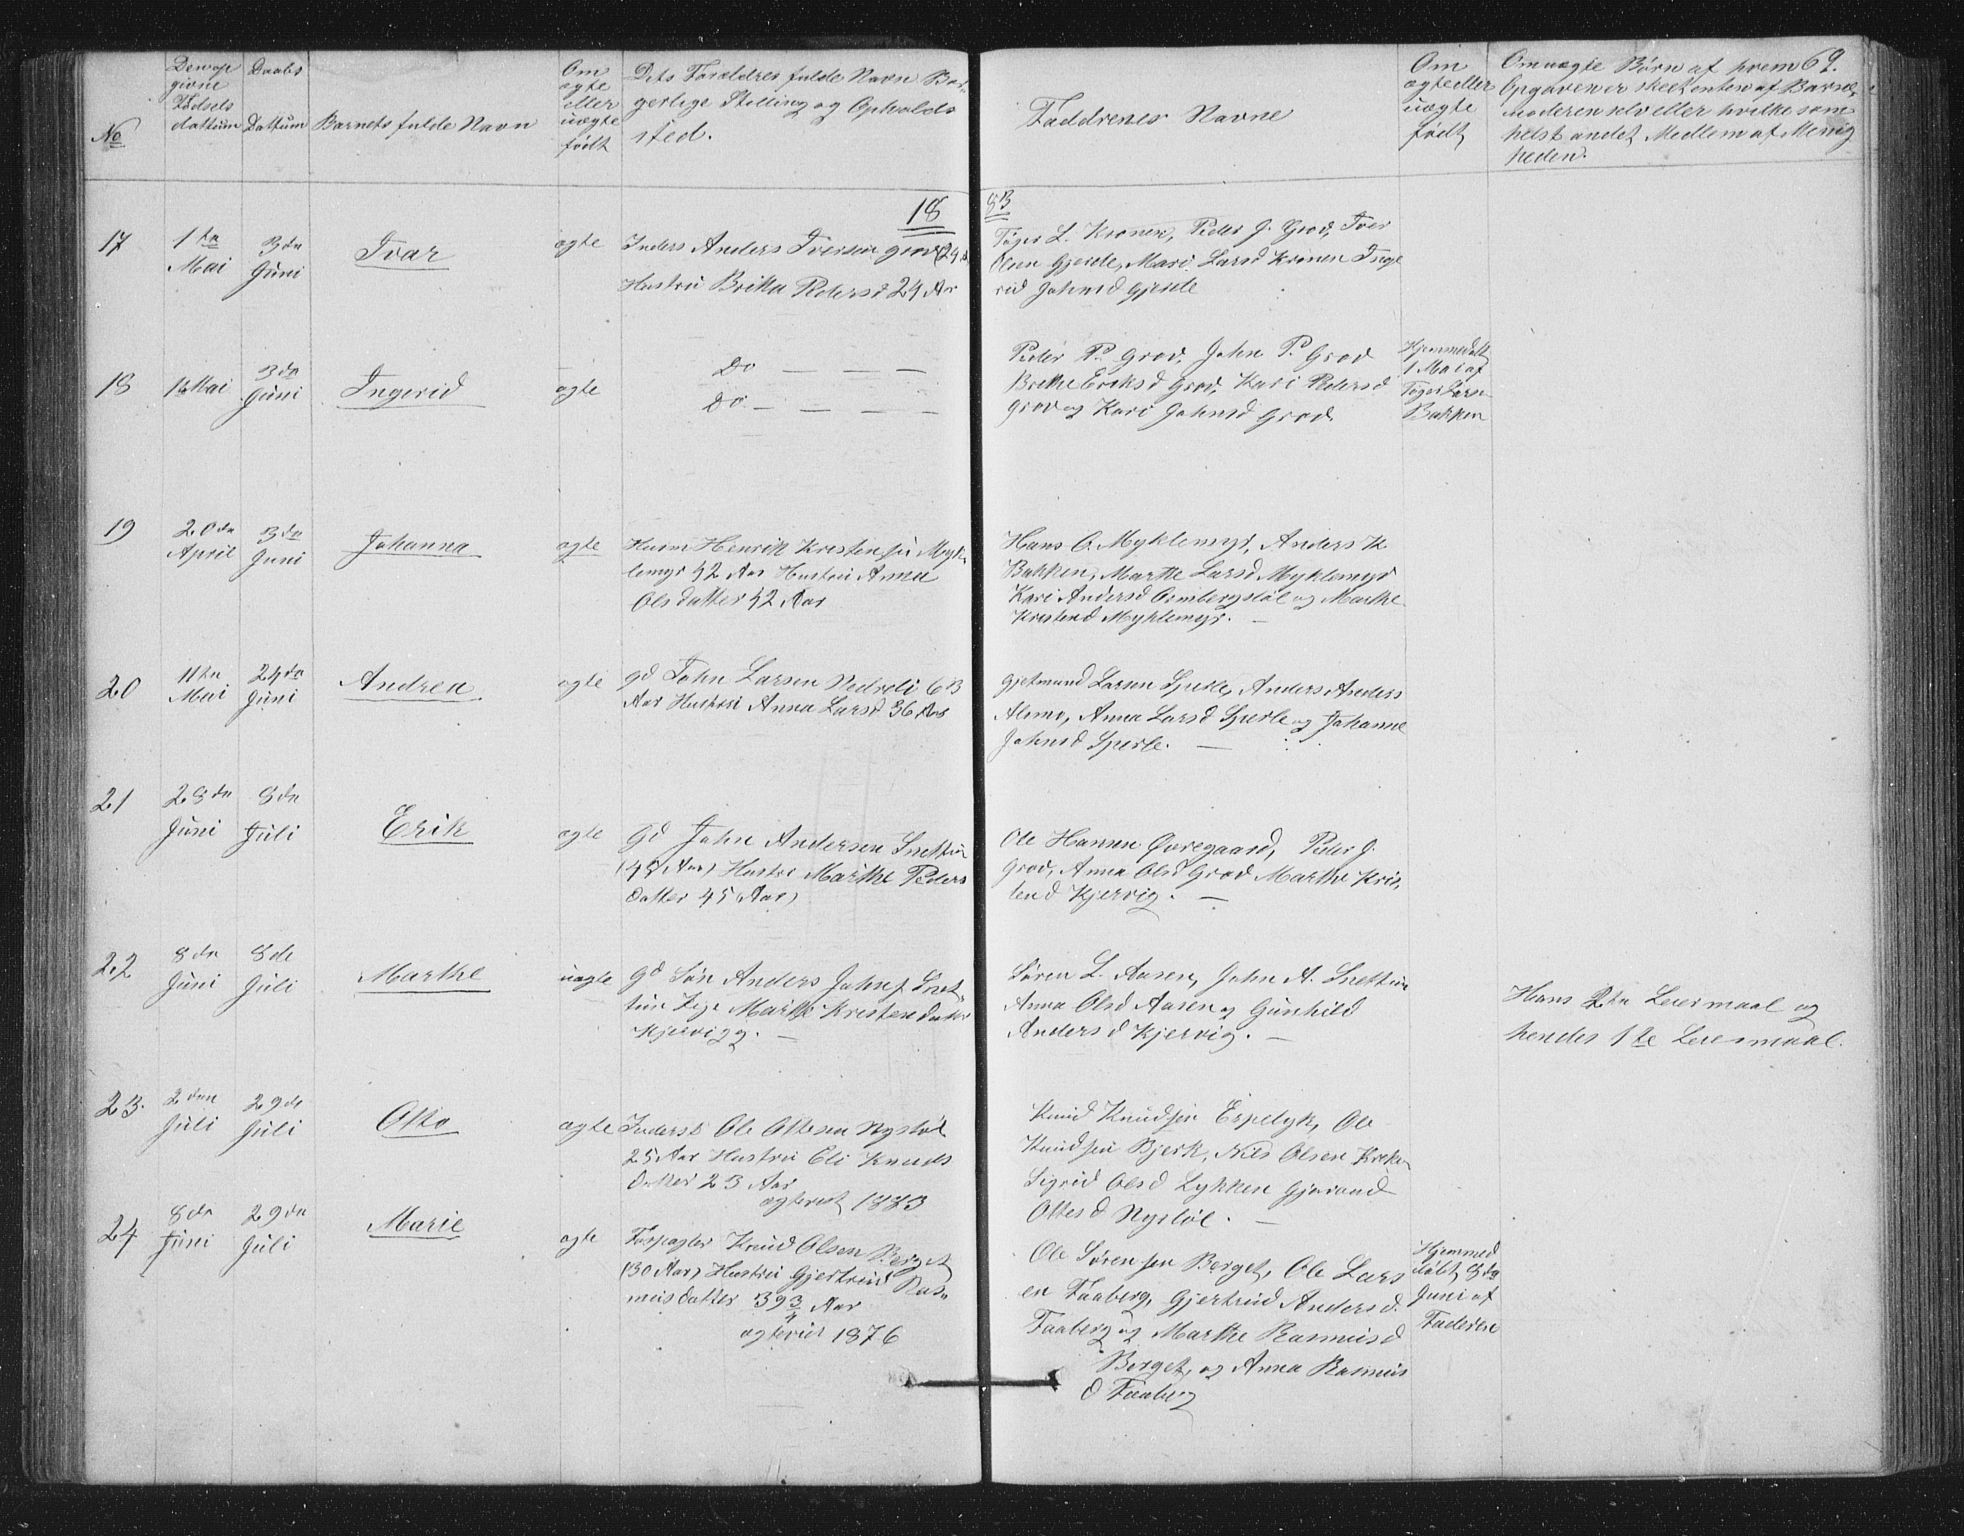 No
Den op
givne
Fødsels
dattum
Daabs
Dattum
Barnets fulde Navn
Om
ægte
eller
uægte
født
Dets Forældres fulde Navn Bor
gerlige Stilling og Opholds
sted.
Faddrenes Navne
Om
ægte eller
uægte
født
Om uægte Børn af hvem 69.
Opgaven er skeet enten af Barne
moderen selv eller hvilke som
helst andet Medlem af Menig
heden.
18 83
17
1ste
Mai
3die
Juni
Ivar
ægte
Inders Anders Iversen Grov (24 A
Hustru Britta Pedersd 24 Aar
Tøger L. Kronen, Peder J. Grov, Iver
Olsen Gjerde, Mari Larsd Kronen Inge
rid Johnsd Gjerde
18
1ste Mai
3die
Juni
Ingerid
ægte
Do — — —
Do — — — —
Peder P. Grov, John P. Grov
Brithe Eriksd Grov, Kari Pedersd
Grov og Kari Johnsd Grov
Hjemmedøbt
1 Mai af
Tøger Larsen
Bakken
19
20de
April
3die
Juni
Johanna
ægte
Husm Henrik Kristensen Myk
lemyr 42 Aar Hustru Anna
Olsdatter 42 Aar
Hans O. Myklemyr, Anders K
Bakken, Marthe Larsd Myklemyr
Kari Andersd Ormbergstøl og Marthe
Kristensd Myklemyr. —
20
11te
Mai
24de
Juni
Andrea
ægte
Gd John Larsen Nedreli 63
Aar Hustru Anna Larsd 36 Aar
Gjetmund Larsen Sperle, Anders Anders
Alsmo, Anna Larsd Sperle og Johanne
Johnsd Sperle. —
21
28de
Juni
8de
Juli
Erik
ægte
Gd John Andersen Snettun
(45 Aar) Hustru Marthe Peders
datter 45 Aar)
Ole Hansen Øvregaard, Peder J.
Grov, Anna Olsd Grov Marthe Kris
tend Kjervig. —
22
8de
Juni
8de
Juli
Marthe
uægte
Gd Søn Anders Johns Snet
tun Pige Marthe Kristensdatter
Kjervigg. —
Søren L. Aasen, John A. Snettun
Anna Olsd Aasen og Gunhild
Andersd Kjervig. —
Hans 2de Leiermaal og
hendes 1te Leiermaal.
23.
2den
Juli
29de
Juli
Otto
ægte
Inderst Ole Ottesen Nystøl
25 Aar Hustru Eli Knuds
datter 23 Aar
ægteviet 1883
Knud Knudsen Espelyk, Ole
Knudsen Bjerk, Nils Olsen Kreken
Sigrid Olsd Lykken Gjørond
Ottesd Nystøl. —
24
8de
Juni
29de
Juli
Marie
ægte
Forpagter Knud Olsen Berget
(30 Aar) Hustru Gjertrud Ras
musdatter 39¾ Aar
ægteviet 1876
Ole Sørensen Berget, Ole Lars
en Faaberg, Gjertrud Andersd.
Faaberg og Marthe Rasmusd
Berget, og Anna Rasmus
d Faaberg
Hjemmed
døbt 8de
Juni af
Faderen